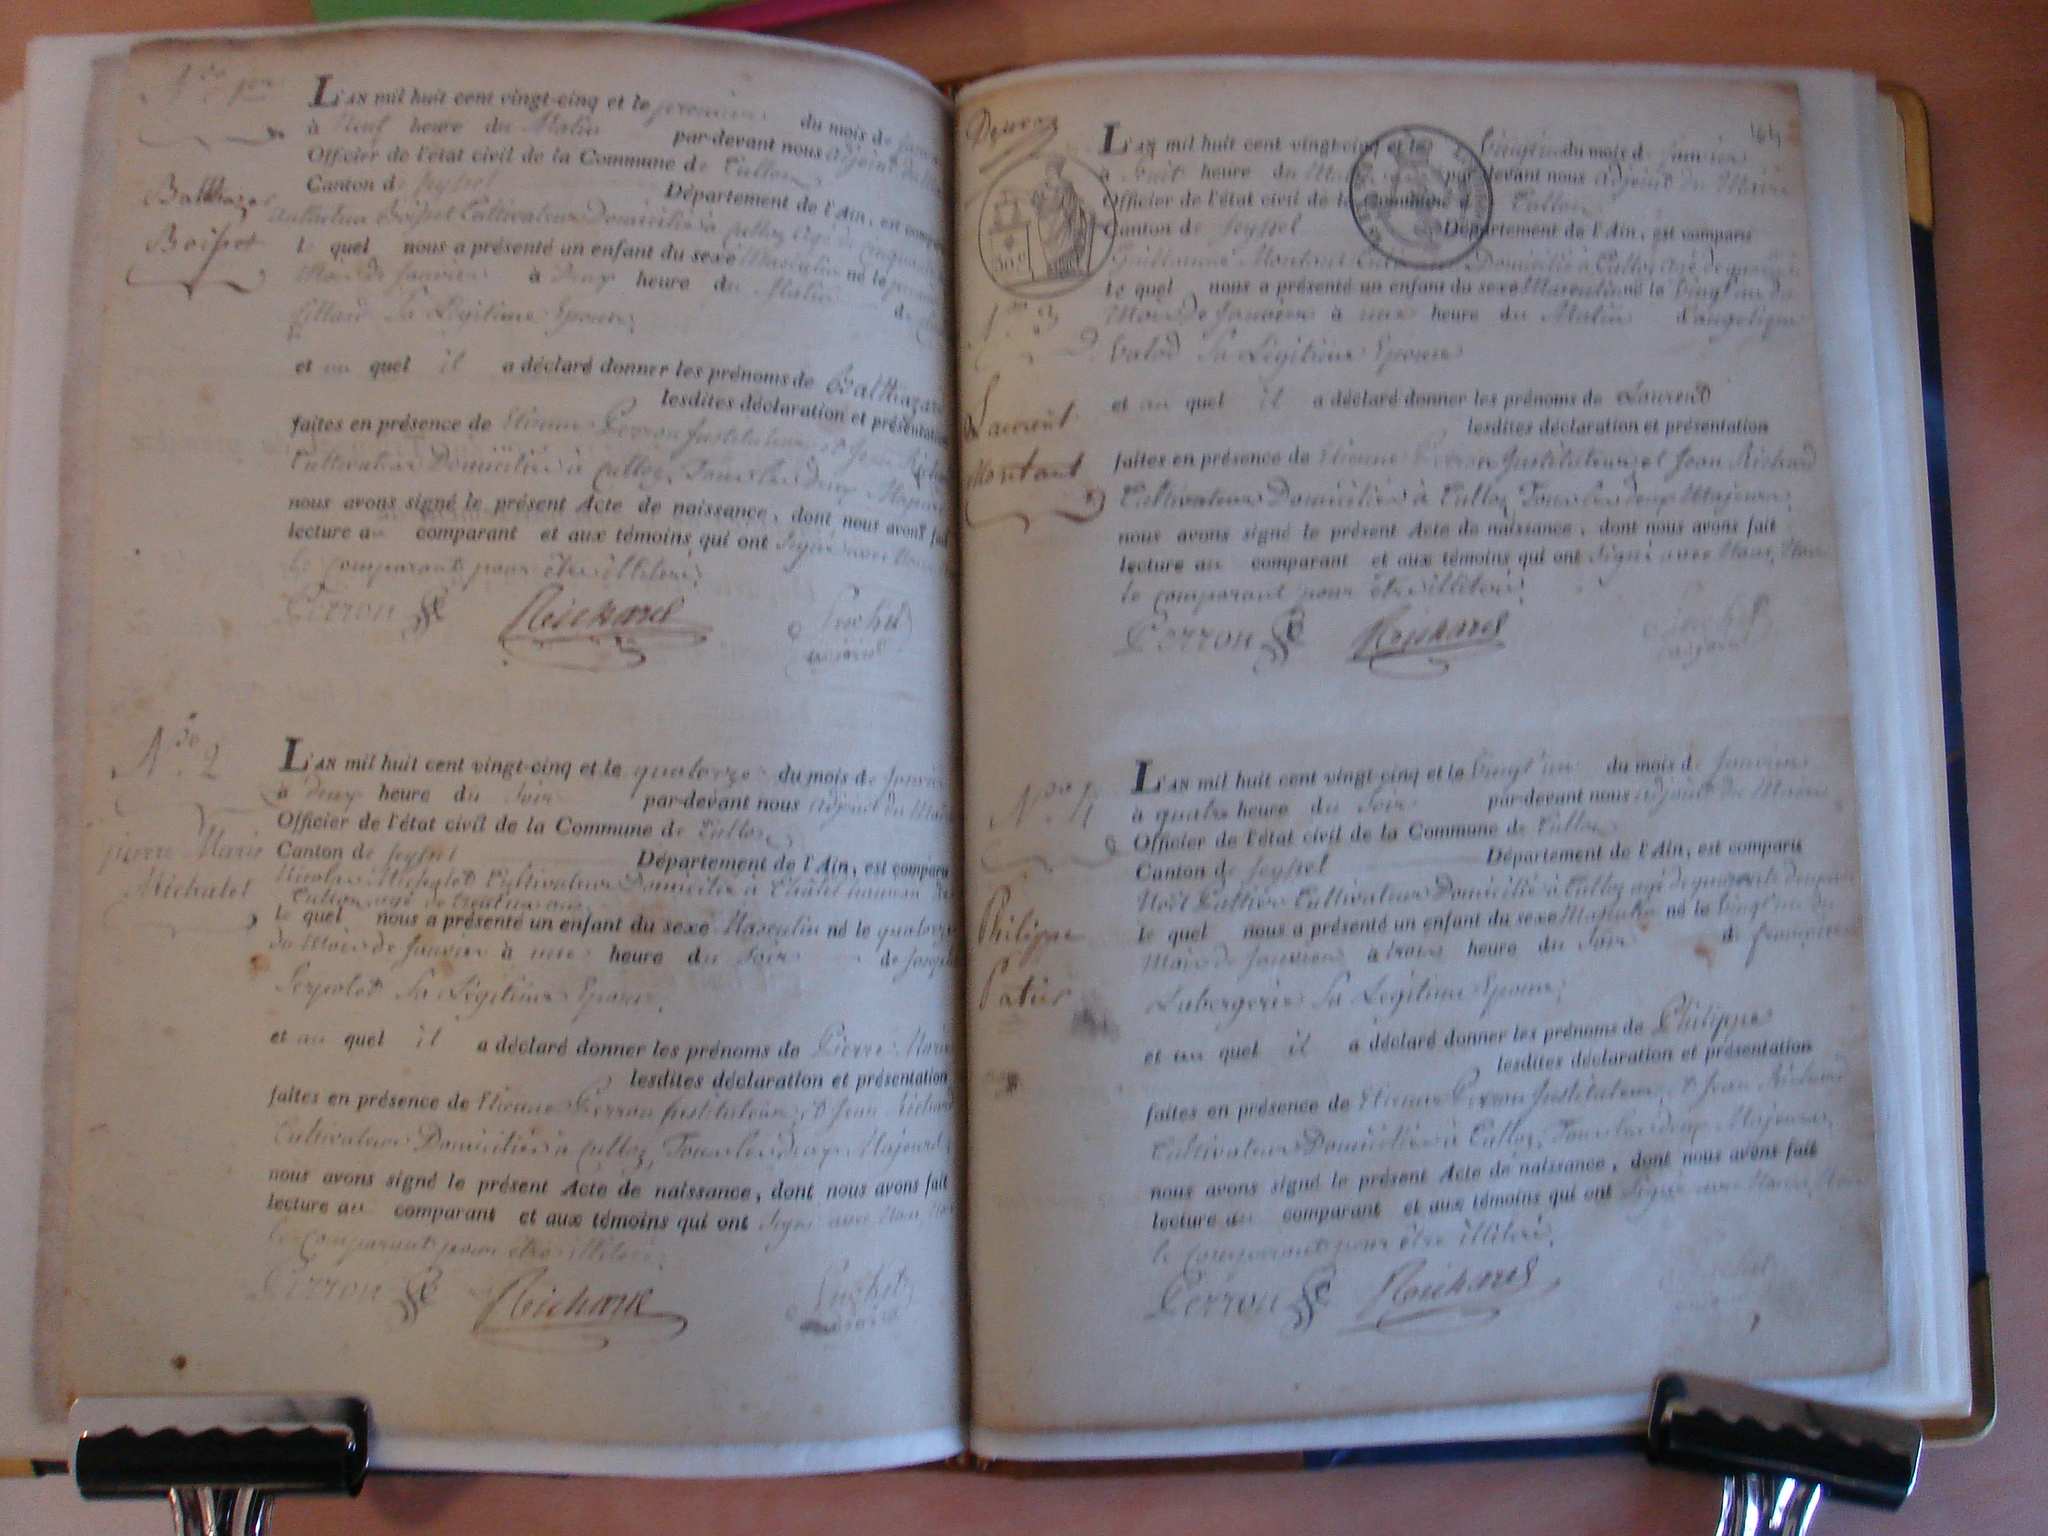 Balthazar
Boisset
L'AN mil huit cent vingt-cinq et le premier du mois de
à Neuf heure du Matin par-devant nous adjoint du
Officier de l'état civil de la Commune de Culloz
Canton de Seyssel Département de l'Ain, est comparu
Boisset Cultivateur Domicilié à Culloz agé de cinquante
le quel nous a présenté un enfant du sexe Masculin né le
Mois de Janvier à Deux heure du Matin de
Sa Légitime Epouse
et au quel il a déclaré donner les prénoms de Balthazard
lesdites déclaration et présentation
faites en présence de Etienne Perron Instituteur et Jean Richard
Cultivateur Domiciliés à Culloz, Tous les deux Majeurs
nous avons signé le présent Acte de naissance, dont nous avons fait
lecture au comparant et aux témoins qui ont Signé avec Nous
le comparant pour être illiteré
Perron Richard
adjoint
N° 2
pierre Marie
Michalet
L'AN mil huit cent vingt-cinq et le quatorze du mois de Janvier
à deux heure du Soir par-devant nous adjoint du Maire
Officier de l'état civil de la Commune de Culloz
Canton de Seyssel Département de l'Ain, est comparu
Nicolas Michalet Cultivateur Domicilié à
agé de trente un ans
le quel nous a présenté un enfant du sexe Masculin né le quatorze
du Mois de Janvier à une heure du Soir de
Serpolet Sa Légitime Epouse
et au quel il a déclaré donner les prénoms de Pierre Marie
lesdites déclaration et présentation
faites en présence de Etienne Perron Instituteur, et Jean Richard
Cultivateur Domiciliés à Culloz, Tous les deux Majeurs
nous avons signé le présent Acte de naissance, dont nous avons fait
lecture au comparant et aux témoins qui ont Signé avec Nous, Non
le comparant pour être illiteré
Perron Richard
adjoint
164
L'AN mil huit cent vingt-cinq et le vingt un du mois de Janvier
à huit heure du Matin par-devant nous adjoint du Maire
Officier de l'état civil de la Commune de Culloz
Canton de Seyssel Département de l'Ain, est comparu
Guillaume Montant Cultivateur Domicilié à Culloz agé de
le quel nous a présenté un enfant du sexe Masculin né le vingt un du
Mois de Janvier à une heure du Matin d'angelique
Sa Légitime Epouse
Laurent
Montant
et au quel il a déclaré donner les prénoms de Laurent
lesdites déclaration et présentation
faites en présence de Etienne Perron Instituteur et Jean Richard
Cultivateur Domiciliés à Culloz, Tous les deux Majeurs
nous avons signé le présent Acte de naissance, dont nous avons fait
lecture au comparant et aux témoins qui ont Signé avec Nous, Non
le comparant pour être illiteré
Perron Richard
adjoint
N° 4
Philippe
Patier
L'AN mil huit cent vingt-cinq et le vingt un du mois de Janvier
à quatre heure du Soir par-devant nous adjoint du Maire
Officier de l'état civil de la Commune de Culloz
Canton de Seyssel Département de l'Ain, est comparu
Noël Cultivateur Domicilié à Culloz agé de quarante deux ans
le quel nous a présenté un enfant du sexe Masculin né le vingt un du
Mois de Janvier à trois heure du Soir de françoise
Labergerie Sa Légitime Epouse
et au quel il a déclaré donner les prénoms de Philippe
lesdites déclaration et présentation
faites en présence de Etienne Perron Instituteur, et Jean Richard
Cultivateur Domiciliés à Culloz, Tous les deux Majeurs
nous avons signé le présent Acte de naissance, dont nous avons fait
lecture au comparant et aux témoins qui ont Signé avec Nous, Non
le comparant pour être illiteré
Perron Richard